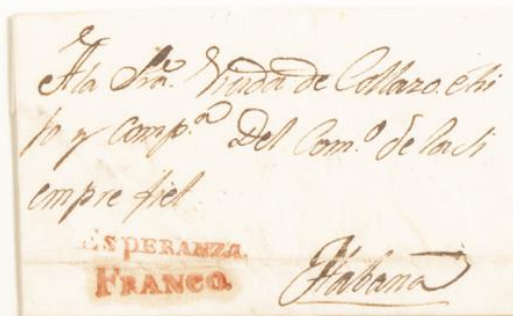 A la Sra. Viuda de Collazo. é hi
jo y comp.a Del Com.o de la Si
empre fiel
ESPERANZA.
FRANCO.
Habana